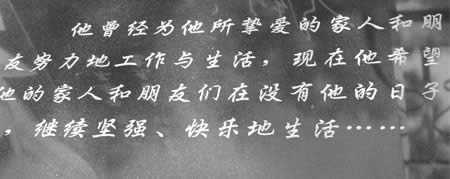 他曾经为他所挚爱的家人和朋
友努力地工作与生活，现在他希望
他的家人和朋友们在没有他的日子
，继续坚强、快乐地生活……